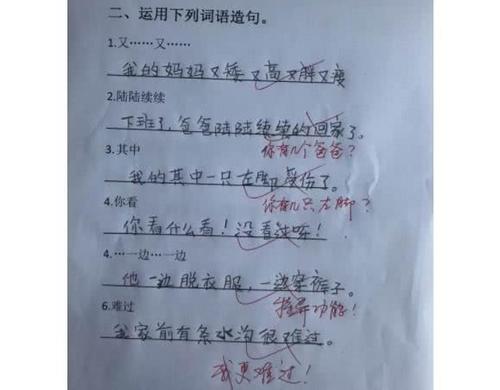 二、运用下列词语造句。
1.又……又……
我的妈妈又矮又高又胖又瘦
2.陆陆续续
下班了，爸爸陆陆续续的回家了。
你有几个爸爸？
3.其中
我的其中一只左脚受伤了。
你有几只左脚？
4.你看
你看什么看！没看过咪！
4.…一边…一边
他一边脱衣服，一边穿裤子。
特异功能！
6.难过
我家前有条水沟很难过。
我更难过！